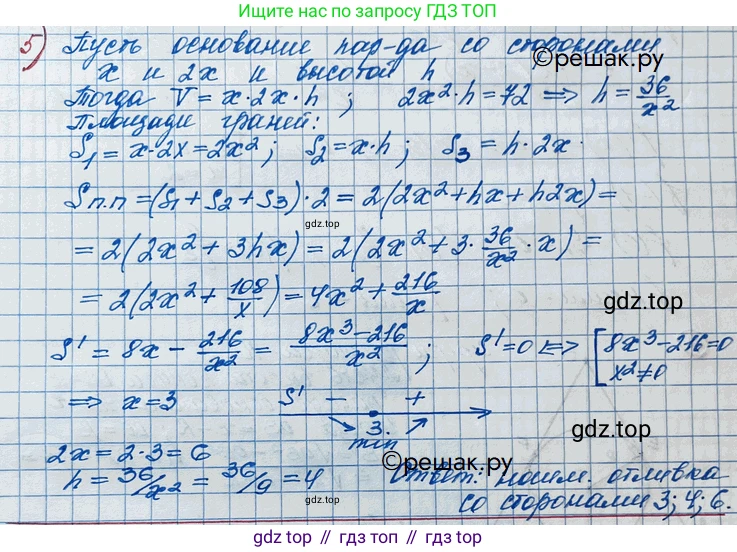 Ищите нас в поиске по запросу ГДЗ ТОП
5) Пусть основание пар-да со сторонами
x и 2x и высотой h
©решак.ру
Тогда V = x·2x·h ; 2x²·h = 72 ⟹ h = 36/x²
Площади граней:
S₁ = x·2x = 2x² ; S₂ = x·h ; S₃ = h·2x·
Sп.п = (S₁ + S₂ + S₃)·2 = 2(2x² + hx + h2x) =
gdz.top
= 2(2x² + 3hx) = 2(2x² + 3·36/x²·x) =
= 2(2x² + 108/x) = 4x² + 216/x
gdz.top
S' = 8x − 216/x² = 8x³−216/x² ; S' = 0 ⟺ [8x³−216=0
x²≠0
⟹ x = 3 S' − +
3.
min
gdz.top
2x = 2·3 = 6
h = 36/x² = 36/9 = 4
©решак.ру
gdz.top
Ответ: наим. отливка
со сторонами 3; 4; 6.
gdz.top // гдз.top // гдз.топ